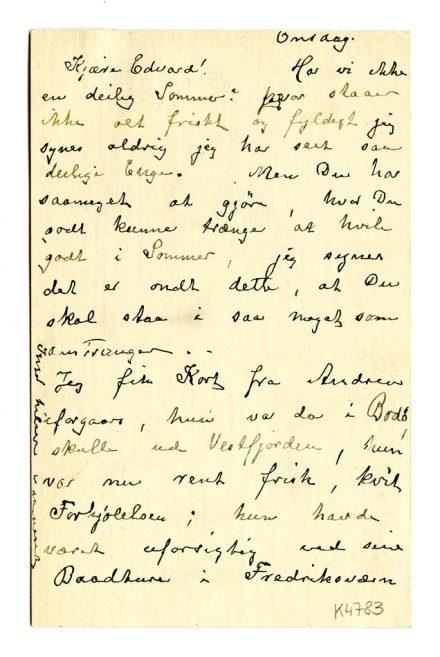 Onsdag.
Kjære Edvard! Har vi ikke
en deilig Sommer? staaer
ikke alt friskt og fyldigt jeg
synes aldrig jeg har seet saa
deilige Enge. Men Du har
saameget at gjøre, hvor Du
godt kunne trænge at hvile
godt i Sommer, jeg synes
det er ondt dette, at Du
skal staa i saa meget som
Trænger . .
Jeg fik Kort fra Andrea
iforgaars, hun var da i Bodø,
skulle ud Vestfjorden, hun
var nu rent frisk, kvit
Forkjølelsen; hun havde
været uforsigtig ved sine
Baadture i Fredriksværn
K4783